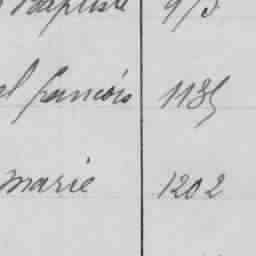 Baptiste 975
el francois 1135
marie 1202